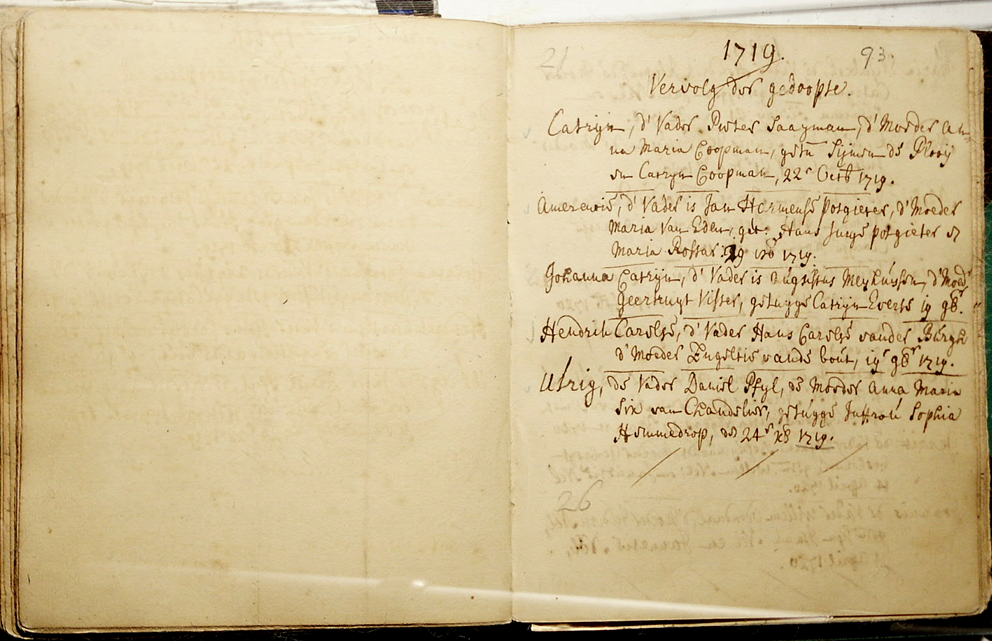 21 1719. 93.
Vervolg der gedoopte.
Catryn, d' Vader Pieter Saayman, d' Moeder An
na Maria Coopman, getu Sijmen de Plooij
en Catryn Coopman, 22e Octb 1719.
d' Vader is Jan Hermense potgieter, d' Moeder
Maria van Eden, get: Hans Jurge potgieter
Maria Rossar 29 1719.
Johanna Catryn, d' Vader is Augustus Meyhússen, d' Moed
Geertruyt Visser, getugge Catryn Everts 19 9b.
Hendrik Carelse, d' Vader Hans Carelse vander Búrgh
d' Moeder Engeltie vande bout, 19e 9b 1719.
Ulrig, de Vader Daniel Pfyl, de Moeder Anna Maria
Six van Chandelier, getúgge Juffroú Sophia
den 24e 1719.
26